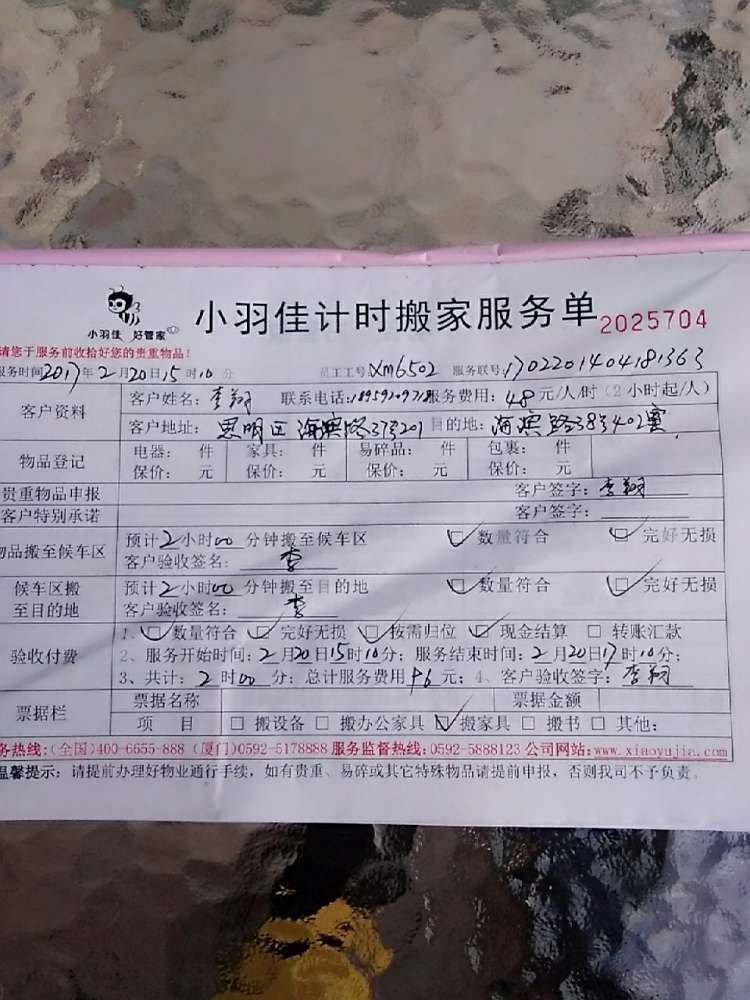 小羽佳 好管家
小羽佳计时搬家服务单 2025704
请您于服务前收拾好您的贵重物品!
服务时间2017年2月20日15时10分 员工工号:Xm6502 服务联号:1702201404181363
客户资料
客户姓名: 李翔 联系电话: 服务费用: 48元/人/时(2小时起/人)
客户地址: 思明区 海滨路 目的地: 海滨路
物品登记
电器: 件 家具: 件 易碎品: 件 包裹: 件
保价: 元 保价: 元 保价: 元 保价: 元
贵重物品申报 客户签字: 李翔
客户特别承诺 客户签字:
物品搬至候车区
预计2小时00分钟搬至候车区 数量符合 完好无损
客户验收签名: 李
候车区搬至目的地
预计2小时00分钟搬至目的地 数量符合 完好无损
客户验收签名: 李
验收付费
1、数量符合 完好无损 按需归位 现金结算 转账汇款
2、服务开始时间:2月20日15时10分; 服务结束时间:2月20日17时10分;
3、共计:2时00分; 总计服务费用96元; 4、客户验收签字: 李翔
票据栏
票据名称 票据金额
项 目 搬设备 搬办公家具 搬家具 搬书 其他:
务热线:(全国)400-6655-888 (厦门)0592-5178888 服务监督热线:0592-5888123 公司网站:www.xiaoyujia.com
温馨提示: 请提前办理好物业通行手续, 如有贵重、易碎或其它特殊物品请提前申报, 否则我司不予负责。